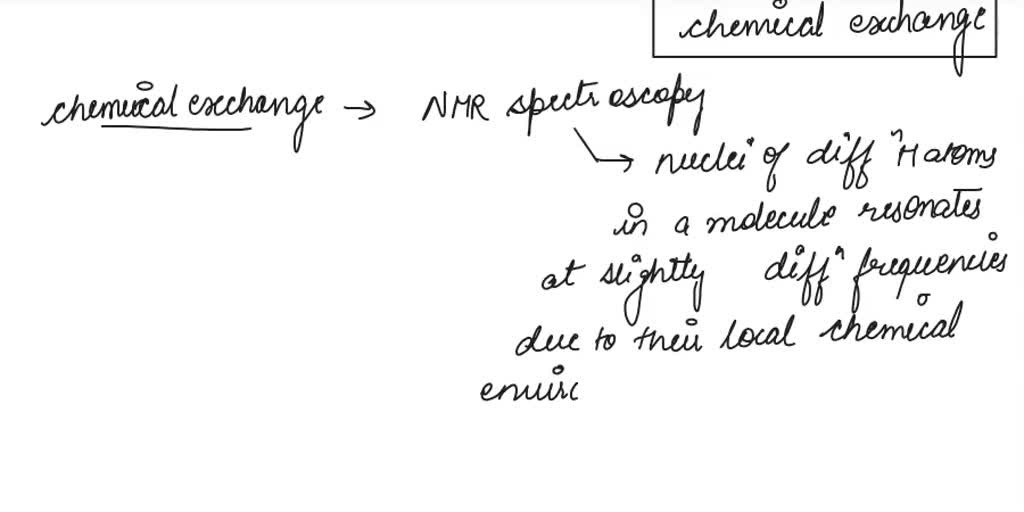 chemical exchange
chemical exchange → NMR spectroscopy
→ nuclei of diffⁿ H atoms
in a molecule resonates
at slightly diffⁿ frequencies
due to their local chemical
enviro